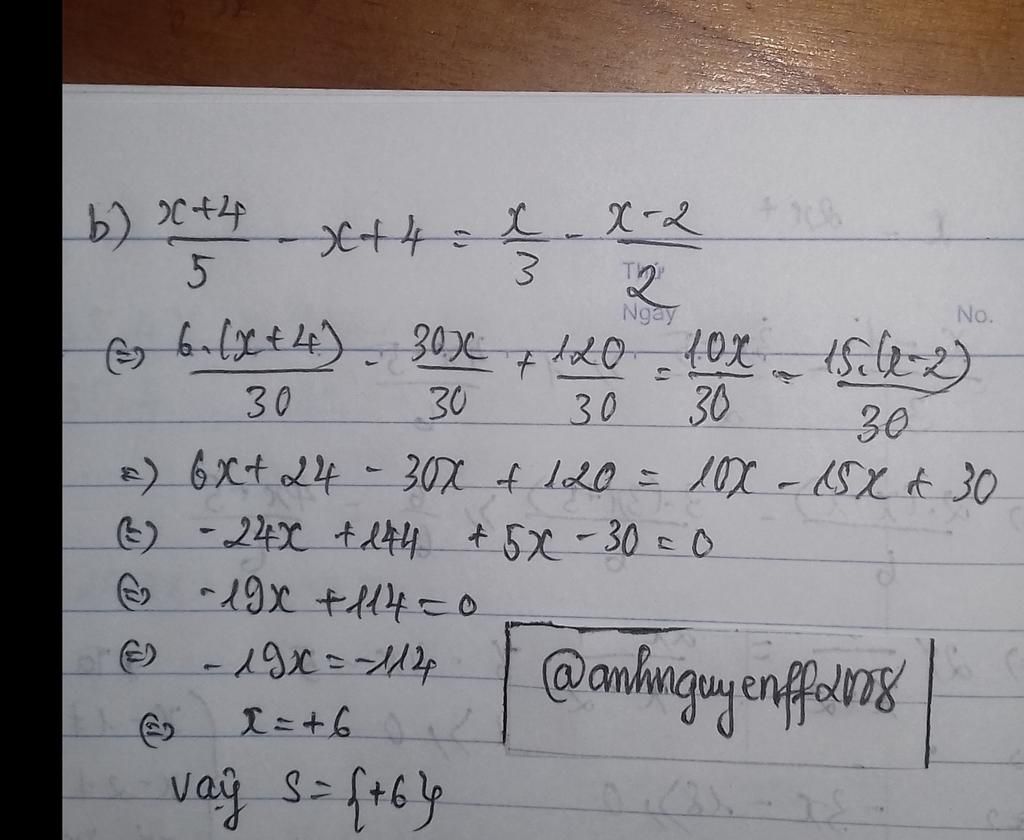 b) (x+4)/5 - x+4 = x/3 - (x-2)/2
Thứ
Ngày No.
⇔ 6.(x+4)/30 - 30x/30 + 120/30 = 10x/30 - 15.(x-2)/30
⇒ 6x+24 - 30x + 120 = 10x - 15x + 30
⇔ -24x +144 +5x -30 = 0
⇔ -19x +114 = 0
⇔ -19x = -114
⇔ x = +6
vaỹ S = {+6}
@anhnguyenff2008